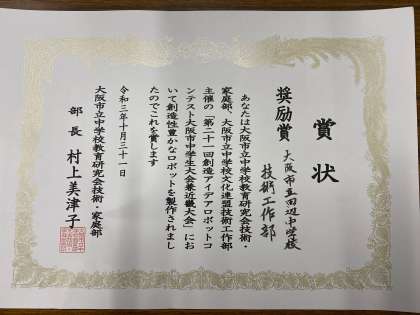 賞状
奨励賞
大阪市立田辺中学校
技術工作部
あなたは大阪市立中学校教育研究会技術・
家庭部、大阪市立中学校文化連盟技術工作部
主催の「第二十一回創造アイデアロボットコ
ンテスト大阪市中学生大会兼近畿大会」にお
いて創造性豊かなロボットを製作されまし
たのでこれを賞します
令和三年十月三十一日
大阪市立中学校教育研究会技術・家庭部
部長 村上美津子